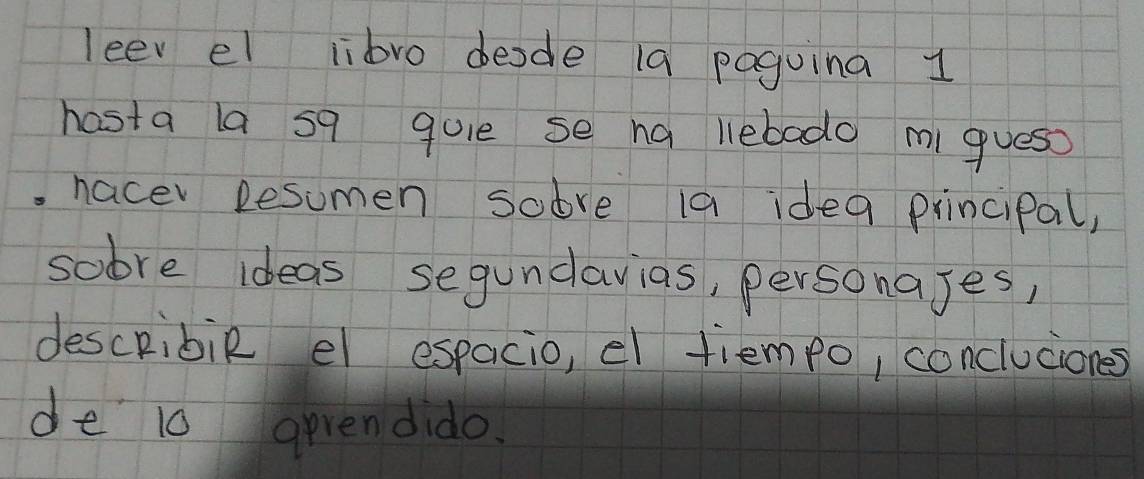 leer el libro desde la paguina 1
hasta la 59 quie se ha llebado mi queso
. hacer Resumen sobre la idea principal,
sobre ideas segundarias, personajes,
describir el espacio, el tiempo, concluciones
de lo aprendido.